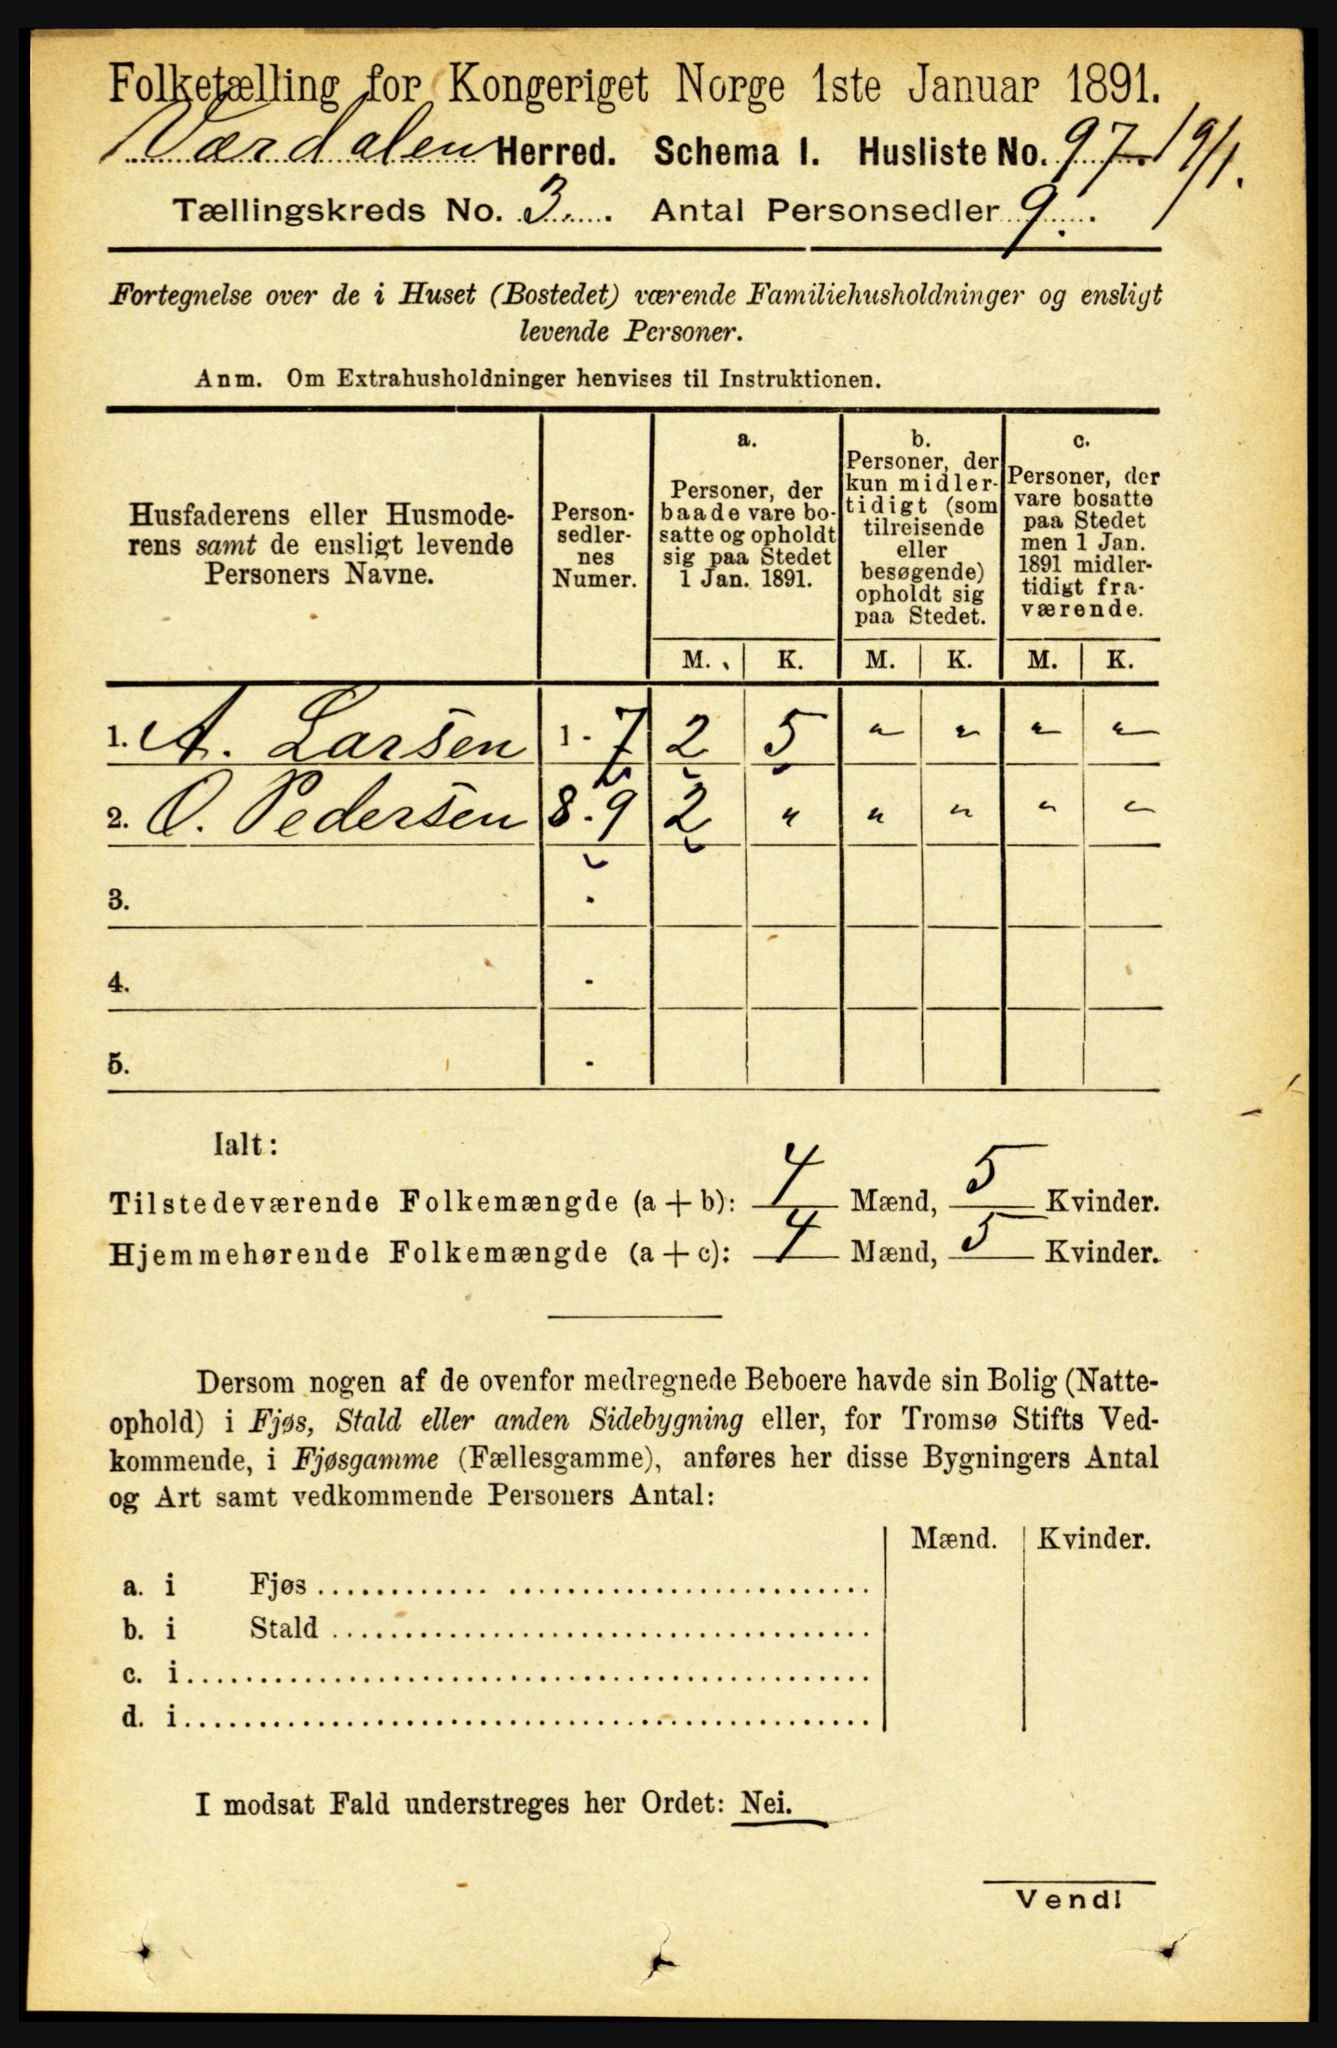 Folketælling for Kongeriget Norge 1ste Januar 1891.
Værdalen Herred. Schema I. Husliste No. 97 19/1.
Tællingskreds No. 3. Antal Personsedler 9.
Fortegnelse over de i Huset (Bostedet) værende Familiehusholdninger og ensligt
levende Personer.
Anm. Om Extrahusholdninger henvises til Instruktionen.
Husfaderens eller Husmode-
rens samt de ensligt levende
Personers Navne.
Person-
sedler-
nes
Numer.
a.
Personer, der
baade vare bo-
satte og opholdt
sig paa Stedet
1 Jan. 1891.
b.
Personer, der
kun midler-
tidigt (som
tilreisende
eller
besøgende)
opholdt sig
paa Stedet.
c.
Personer, der
vare bosatte
paa Stedet
men 1 Jan.
1891 midler-
tidigt fra-
værende.
M. K. M. K. M. K.
1. A. Larsen 1 - 7 2 5 " " " "
2. O. Pedersen 8 - 9 2 " " " " "
3. -
4. -
5. -
Ialt:
Tilstedeværende Folkemængde (a + b): 4 Mænd, 5 Kvinder.
Hjemmehørende Folkemængde (a + c): 4 Mænd, 5 Kvinder.
Dersom nogen af de ovenfor medregnede Beboere havde sin Bolig (Natte-
ophold) i Fjøs, Stald eller anden Sidebygning eller, for Tromsø Stifts Ved-
kommende, i Fjøsgamme (Fællesgamme), anføres her disse Bygningers Antal
og Art samt vedkommende Personers Antal:
Mænd. Kvinder.
a. i Fjøs
b. i Stald
c. i
d. i
I modsat Fald understreges her Ordet: Nei.
Vend!